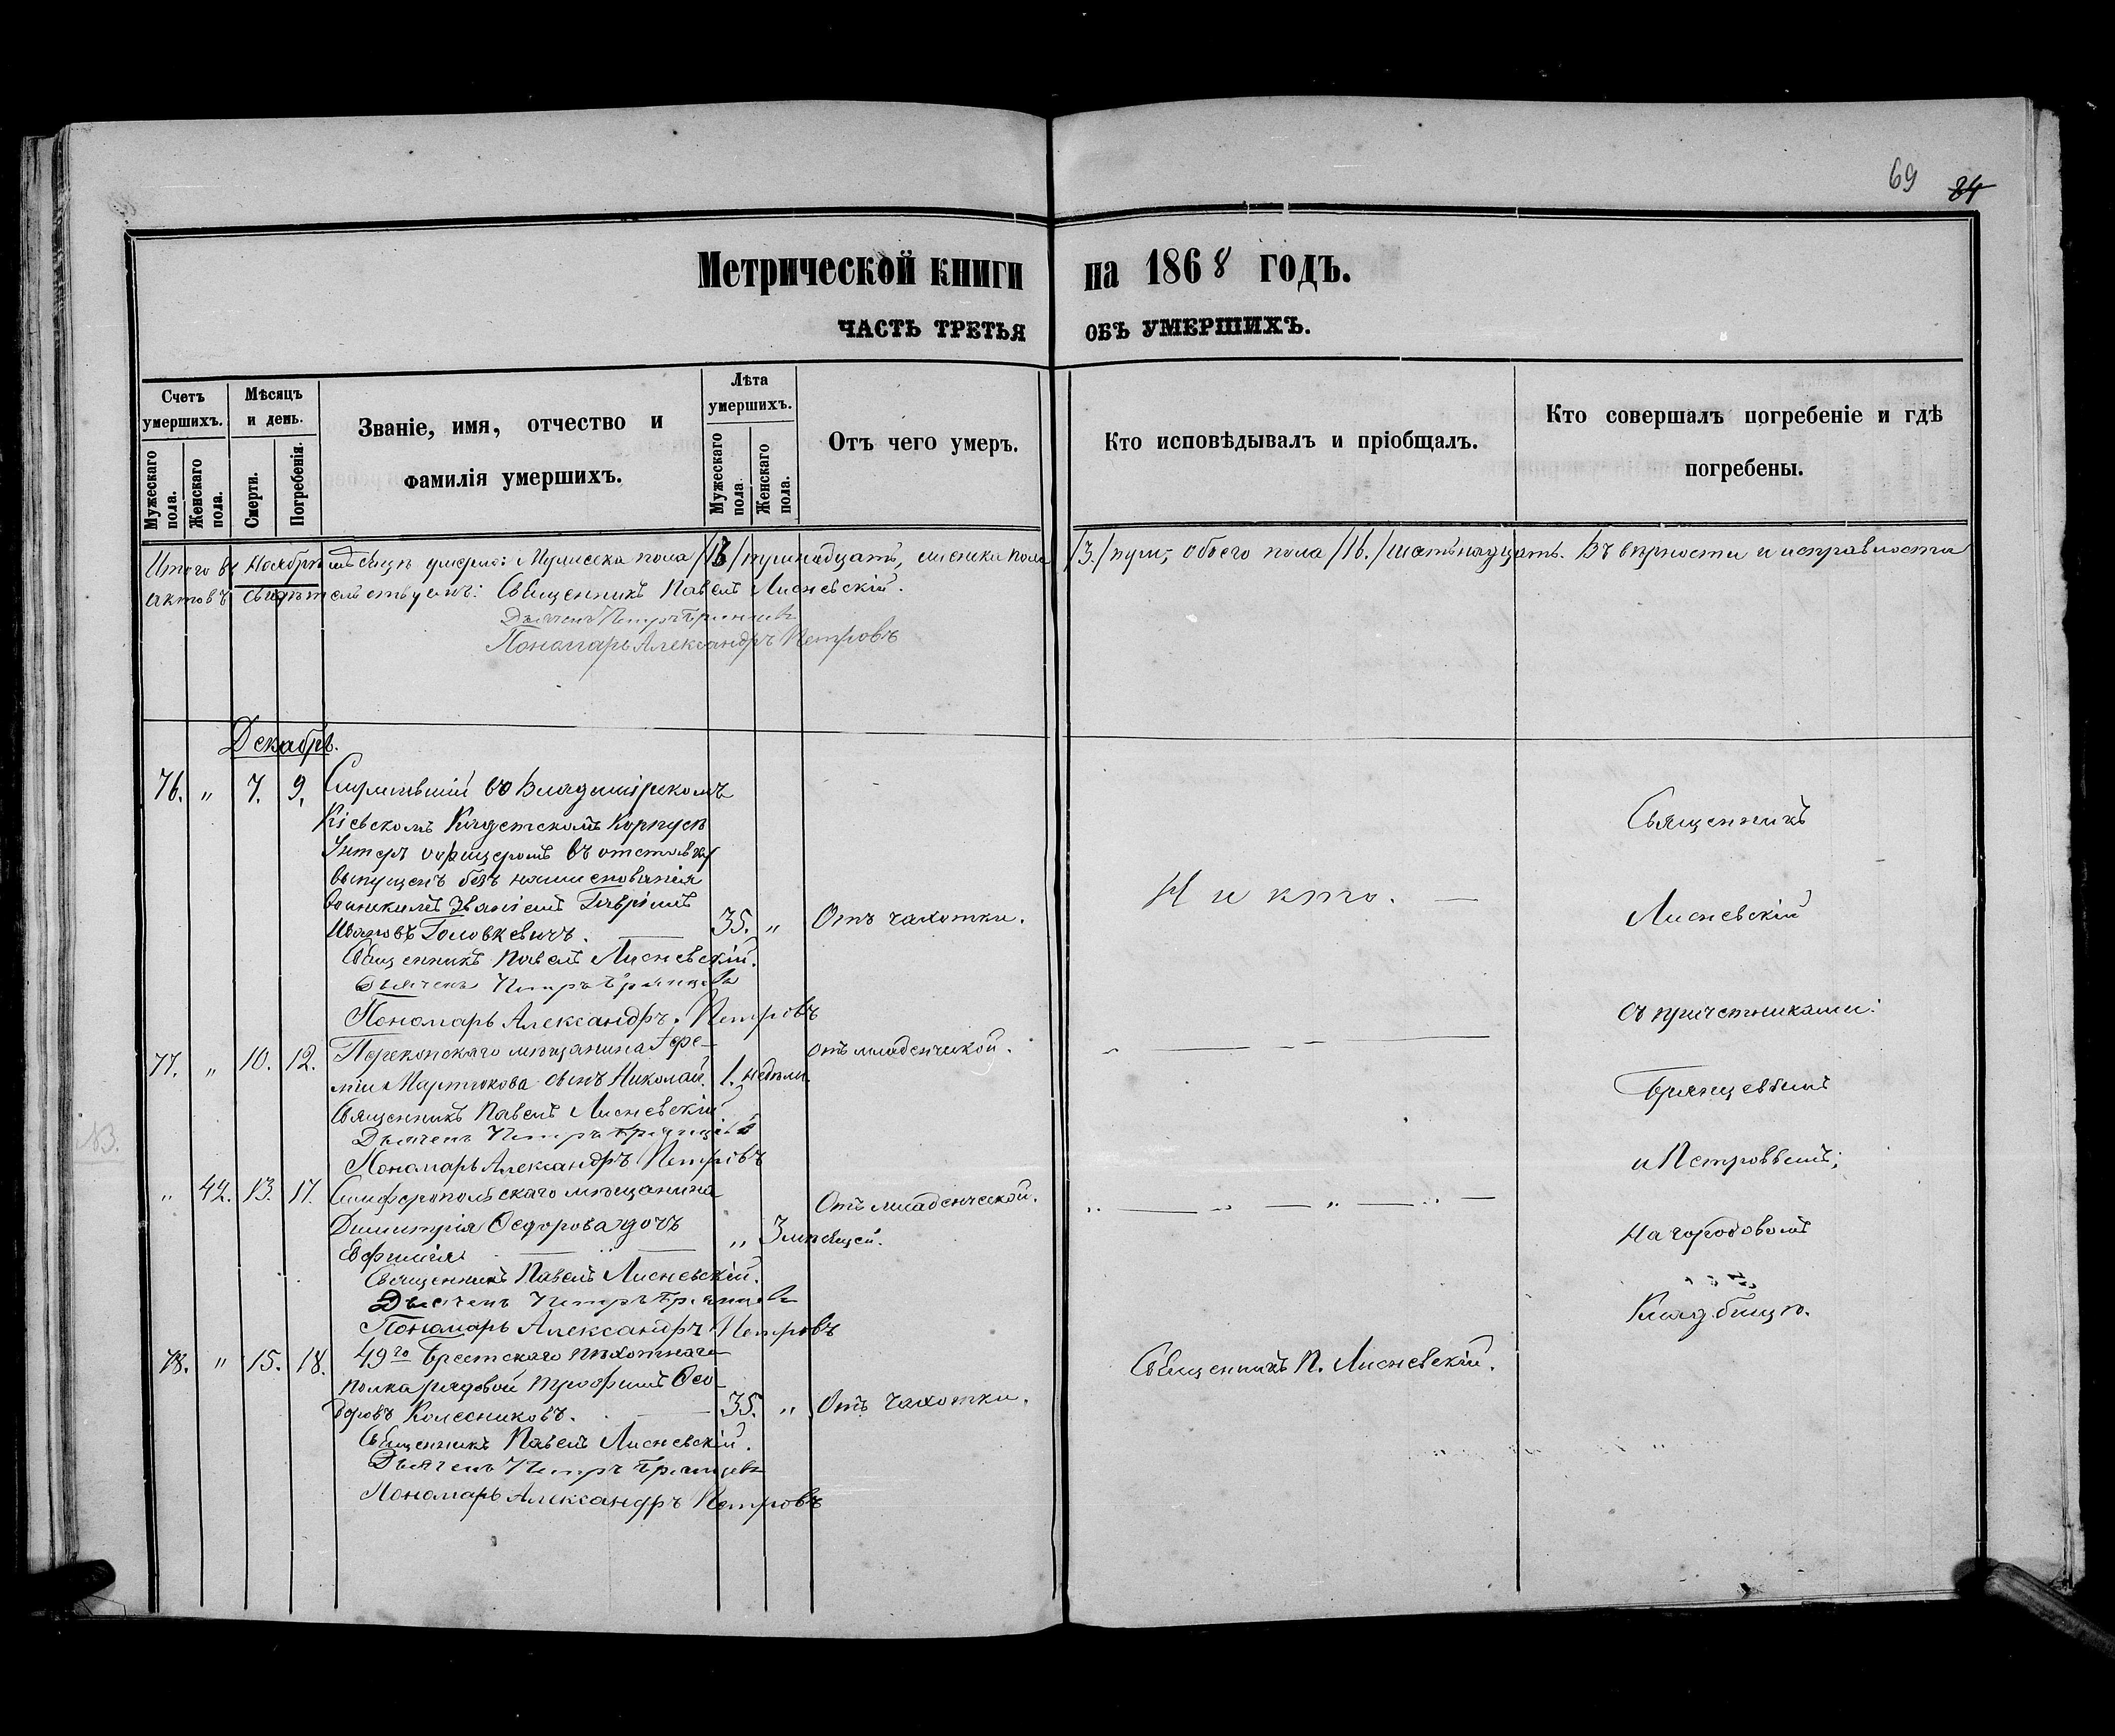 69 84
Метрической книги на 1868 годъ.
ЧАСТЬ ТРЕТЬЯ ОБЪ УМЕРШИХЪ.
Счетъ умершихъ.
Мужескаго пола.
Женскаго пола.
Мѣсяцъ и день.
Смерти.
Погребенія.
Званіе, имя, отчество и фамилія умершихъ.
Лѣта умершихъ.
Мужескаго пола.
Женскаго пола.
Отъ чего умеръ.
Кто исповѣдывалъ и пріобщалъ.
Кто совершалъ погребеніе и гдѣ погребены.
Итого въ Ноябрѣ мѣсяцѣ умерло: Мужеска пола /13/ тринадцать, женска пола /3./ три, обоего пола /16./ шестьнадцать. Въ вѣрности и исправности
актовъ свидѣтельствуемъ: Священникъ Павелъ Лисневскій.
Дьячекъ Петръ Брянцевъ
Пономарь Александръ Петровъ
Декабрь.
76. „ 7. 9. Служившій во Владимірскомъ
Кіевскомъ Кадетскомъ Корпусѣ
Унтеръ офицеромъ въ отставку
выпущенъ безъ наименованія
воинскимъ званіемъ Гавріилъ
Ивановъ Головкевичъ. 35. „ Отъ чахотки. Никто.
Священникъ Павелъ Лисневскій.
Дьячекъ Петръ Брянцевъ
Пономарь Александръ Петровъ
77. „ 10. 12. Перекопскаго мѣщанина Ефи-
міи Мартюкова сынъ Николай. 1. недѣли. Отъ младенческой.
Священникъ Павелъ Лисневскій
Дьячекъ Петръ Брянцевъ
Пономарь Александръ Петровъ
NB.
„ 42. 13. 17. Симферопольскаго мѣщанина
Димитрія Ѳедорова дочь „ 3 мѣсяцей. Отъ младенческой.
Евфимія
Священникъ Павелъ Лисневскій.
Дьячекъ Петръ Брянцевъ
Пономарь Александръ Петровъ
78. „ 15. 18. 49го Брестскаго пѣхотнаго
полка рядовой Трофимъ Ѳео-
доровъ Колесниковъ. 35. „ Отъ чахотки. Священникъ П. Лисневскій.
Священникъ Павелъ Лисневскій.
Дьячекъ Петръ Брянцевъ
Пономарь Александръ Петровъ
Священникъ
Лисневскій
съ причетниками:
Брянцевымъ
и Петровымъ;
на городовомъ
Кладбищѣ.